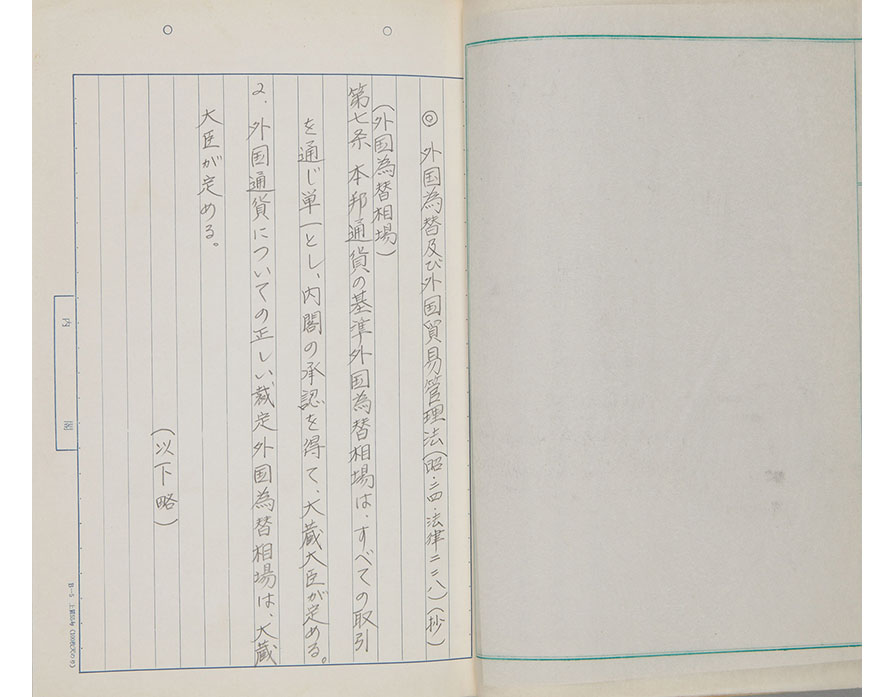 ◎ 外国為替及び外国貿易管理法(昭・二四・法律二二八)(抄)
(外国為替相場)
第七条 本邦通貨の基準外国為替相場は、すべての取引
を通じ単一とし、内閣の承認を得て、大蔵大臣が定める。
2. 外国通貨についての正しい裁定外国為替相場は、大蔵
大臣が定める。
(以下略)
内閣